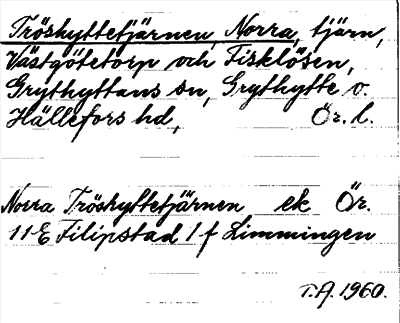 Tröshyttetjärnen, Norra, tjärn,
Västgötetorp och Fisklösen,
Grythyttans sn, Grythytte o.
Hällefors hd, Ör. l.
Norra Tröshyttetjärnen ek Ör.
11E Filipstad 1 f Limmingen
T.A. 1960.